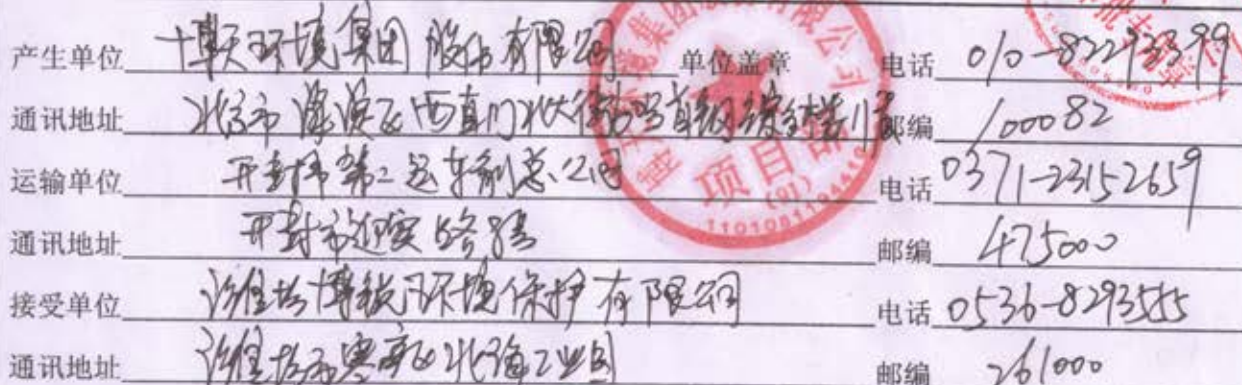 产生单位 博天环境集团股份有限公司 单位盖章 电话 010-82293399
通讯地址 北京市海淀区西直门北大街 首钢综合楼 邮编 100082
运输单位 开封市第二运输总公司 电话 0371-23152659
通讯地址 开封市迎宾路8号 邮编 475000
接受单位 潍坊博锐环境保护有限公司 电话 0536-8293555
通讯地址 潍坊市寒亭区北海工业园 邮编 261000
境集团股份有限公司
项目部
(01)